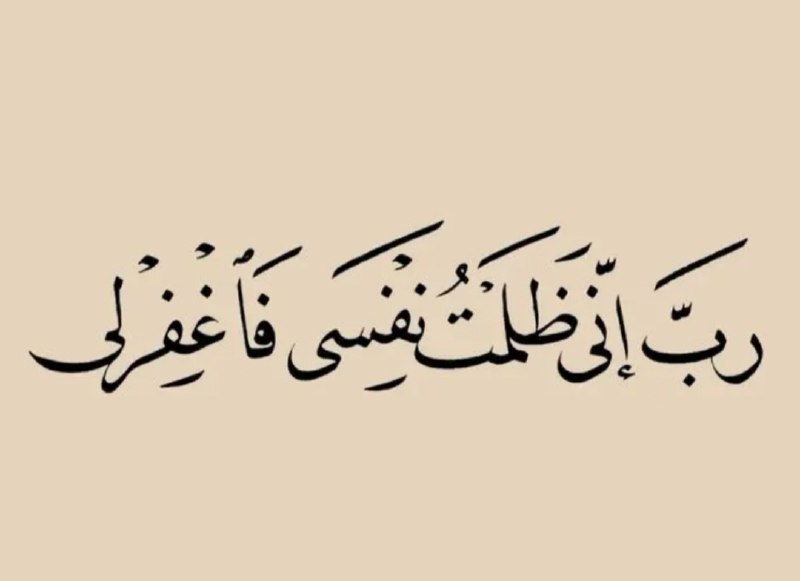 رَبَّ إِنّى ظَلَمْتُ نَفْسَى فَٱغْفِرْلى